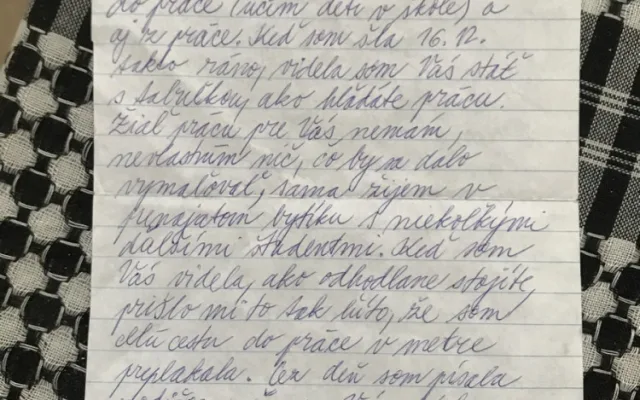 do práce (učím deti v škole) a
aj z práce. Keď som šla 16.12.
takto ráno, videla som Vás stáť
s tabuľkou, ako hľadáte prácu.
Žiaľ prácu pre Vás nemám,
nevlastním nič, čo by sa dalo
vymaľovať, sama žijem v
prenajatom bytíku s niekoľkými
ďalšími študentmi. Keď som
Vás videla, ako odhodlane stojíte,
prišlo mi to tak ľúto, že som
celú cestu do práce v metre
preplakala. Cez deň som písala